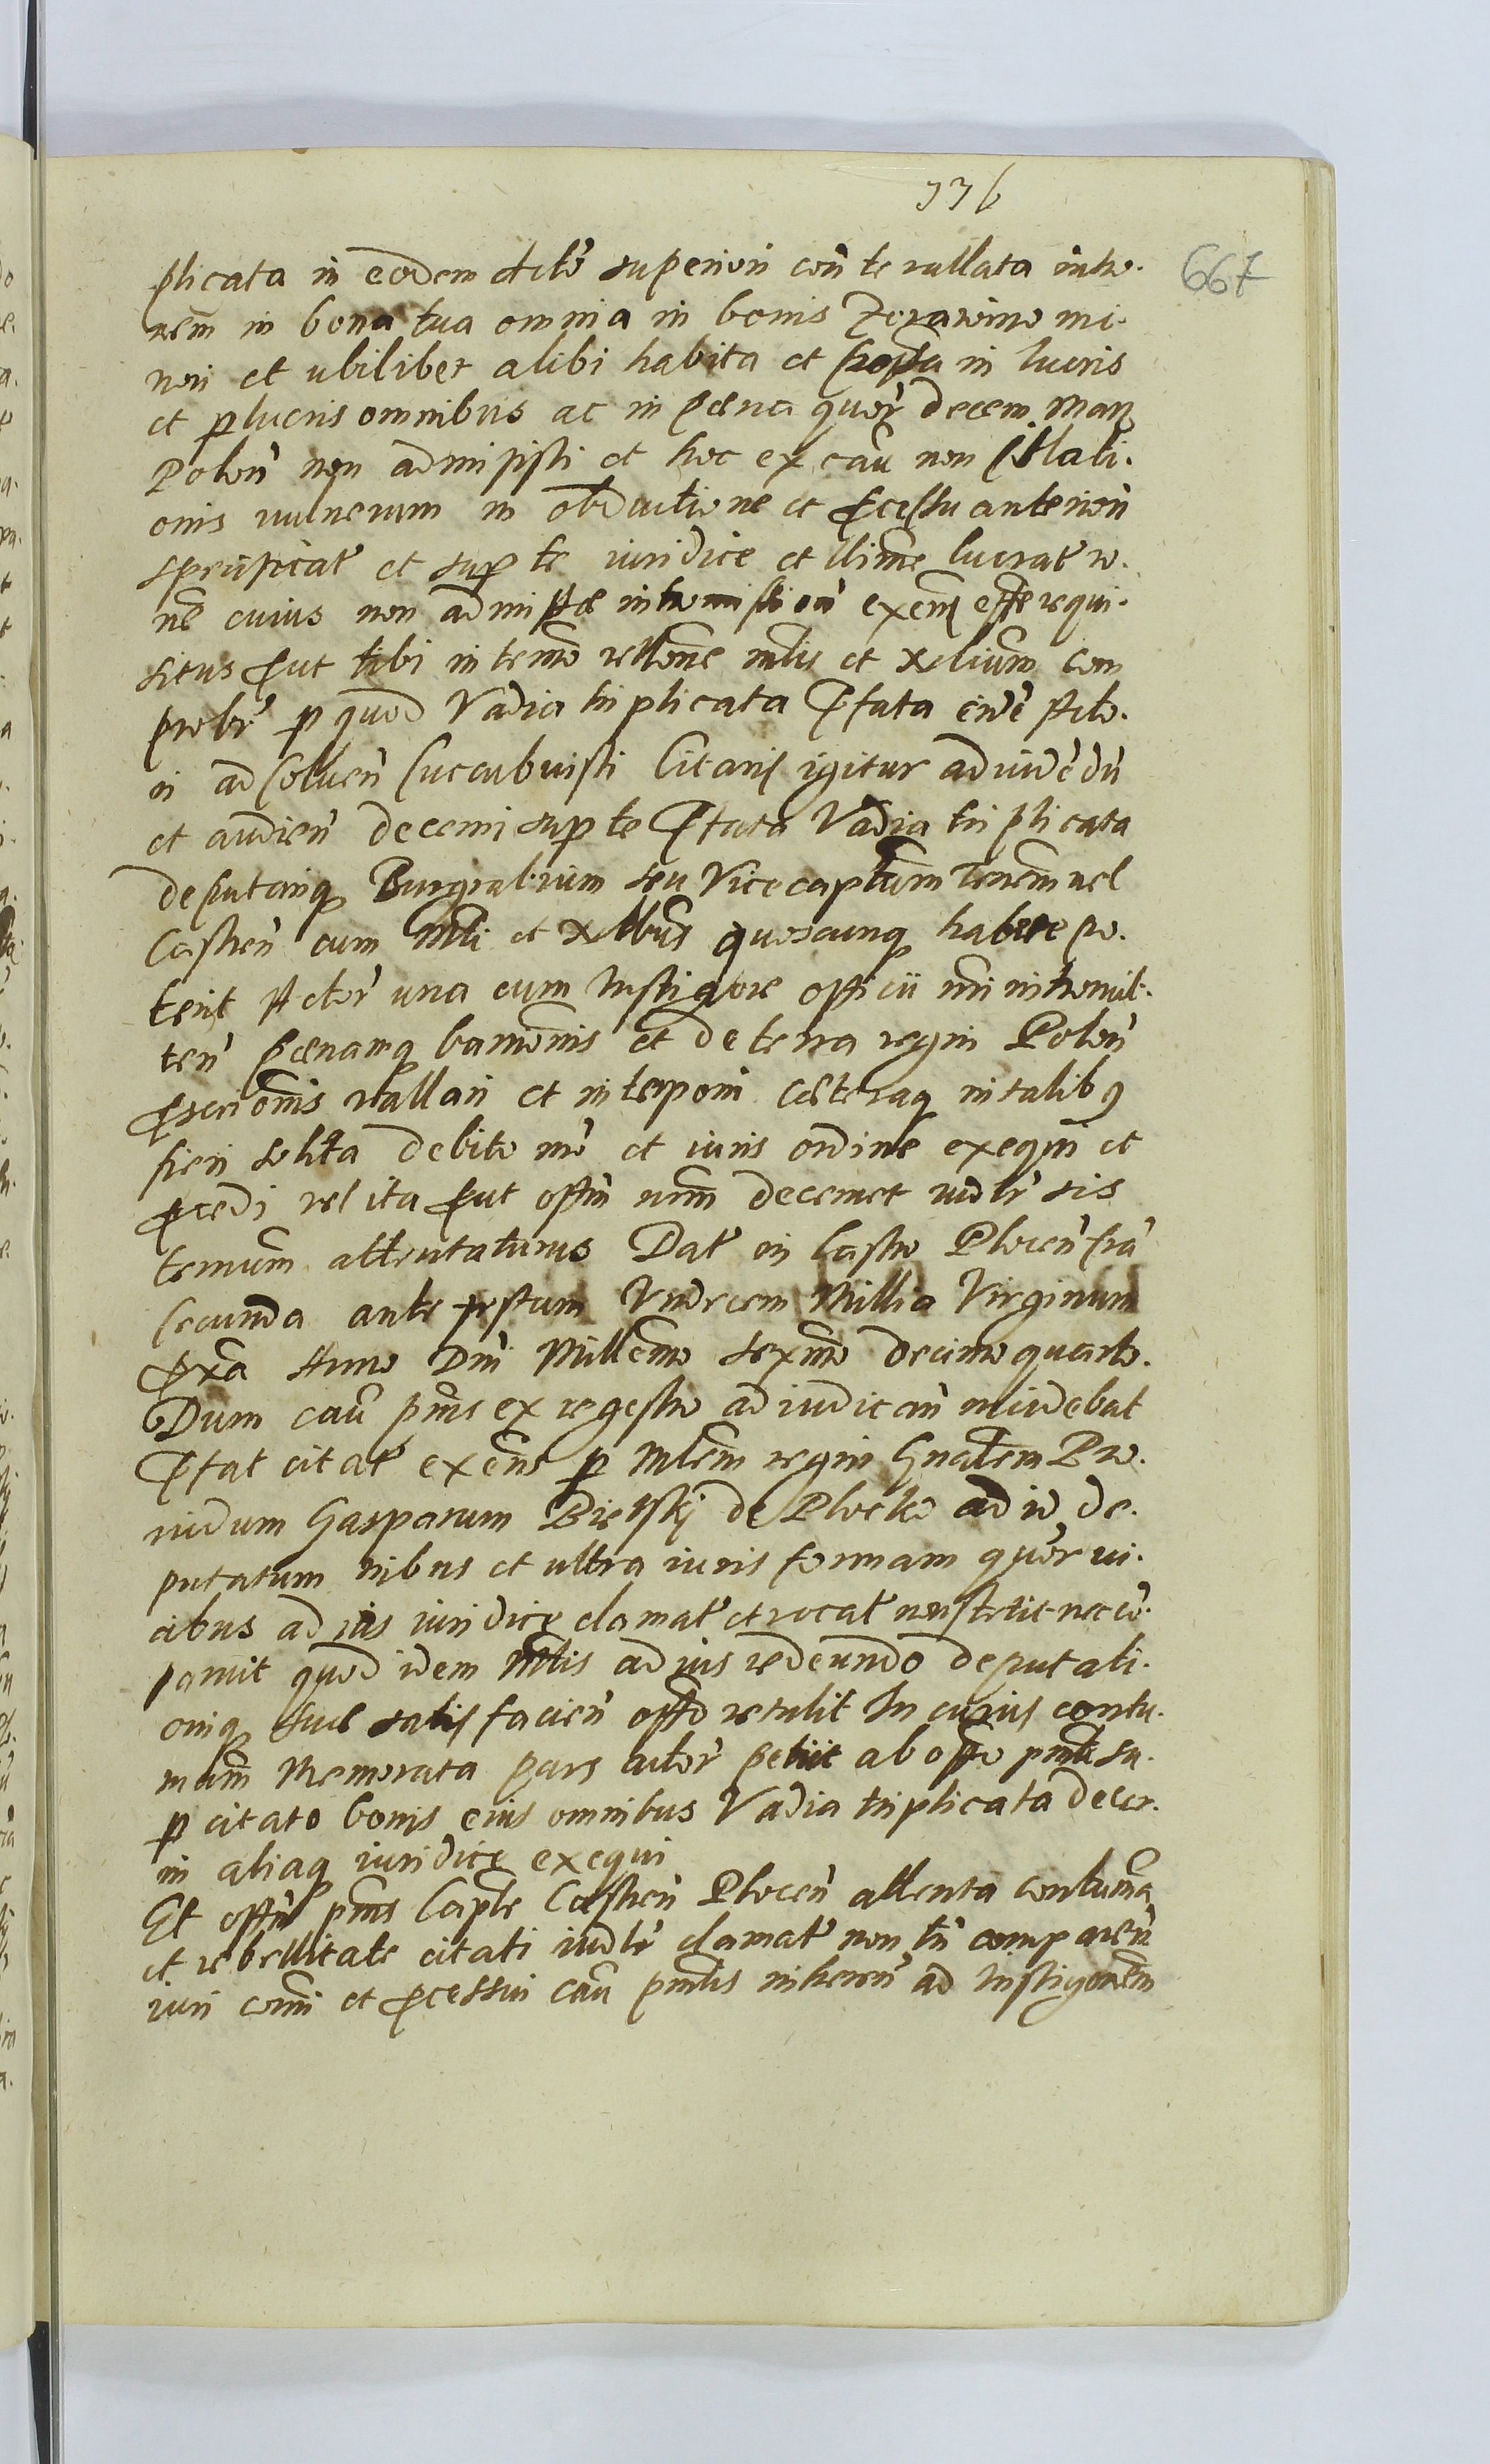 336
667
plicata in eodem Actor superiori con te vallata intro.
nem in bona tua omnia in bonis Zorawino mi.
nori et ubilibet alibi habita et in lucris
et perlucris omnibus ac in poena quor decem Marz
Polon non admisisti et hoc ex cau non citati.
onis vulnerum in obductione et processu anteriori
specificat et super te iuridice et llime lucrat ro.
ne cuius non admissae intromissionis exens esse requi.
situs prout tibi in termo rellone mlis et nobilium com
probr per quod Vadia triplicata Ptata Acto.
ri ad soluen succubuisti Citaris igitur ad videdu
et audien decerni super te Ptata Vadia triplicata
deputariq Burgrabium seu Vicecaptum Tenem vel
Castren cum Mli et Nlibus quoscunq habere po.
terit Actor una cum Instigatore officii nri intromit.
ten poenamq bannionis et de terra regni Polon
proscrionis vallari et interponi caeteraq in talibus
fieri solita debito mo et iuris ordine exequi et
procedi vel ita prout offm nrum decernet iudlr sis
termum attentaturus Dat in Castro Plocen fria
secunda ante festum Undecem Millia Virginum
proxa Anno Dni Millemo sexmo decimo quarto.
Dum cau pns ex regestro ad iudican incidebat
Ptat citat exens per Mlem regni Gnalem Pro.
vidum Gasparum Bielskj de Plocko ad id de.
putatum tribus et ultra iuris formam quor vi.
cibus ad ius iuridice clamat et vocat non stetit nec co.
paruit quod idem Mlis ad ius redeundo deputati.
oniq suae satisfacien offo retulit In cuius contu.
mam Memorata pars actor petiit ab offo pnti su.
per citato bonis eius omnibus Vadia triplicata decer.
ni aliaq iuridice exequi
Et offm pns Caple Castren Plocen attenta contuma
et rebellitate citati iudlr clamat non tn comparen
iuri comi et processui cau pntis inheren ad Instigonem